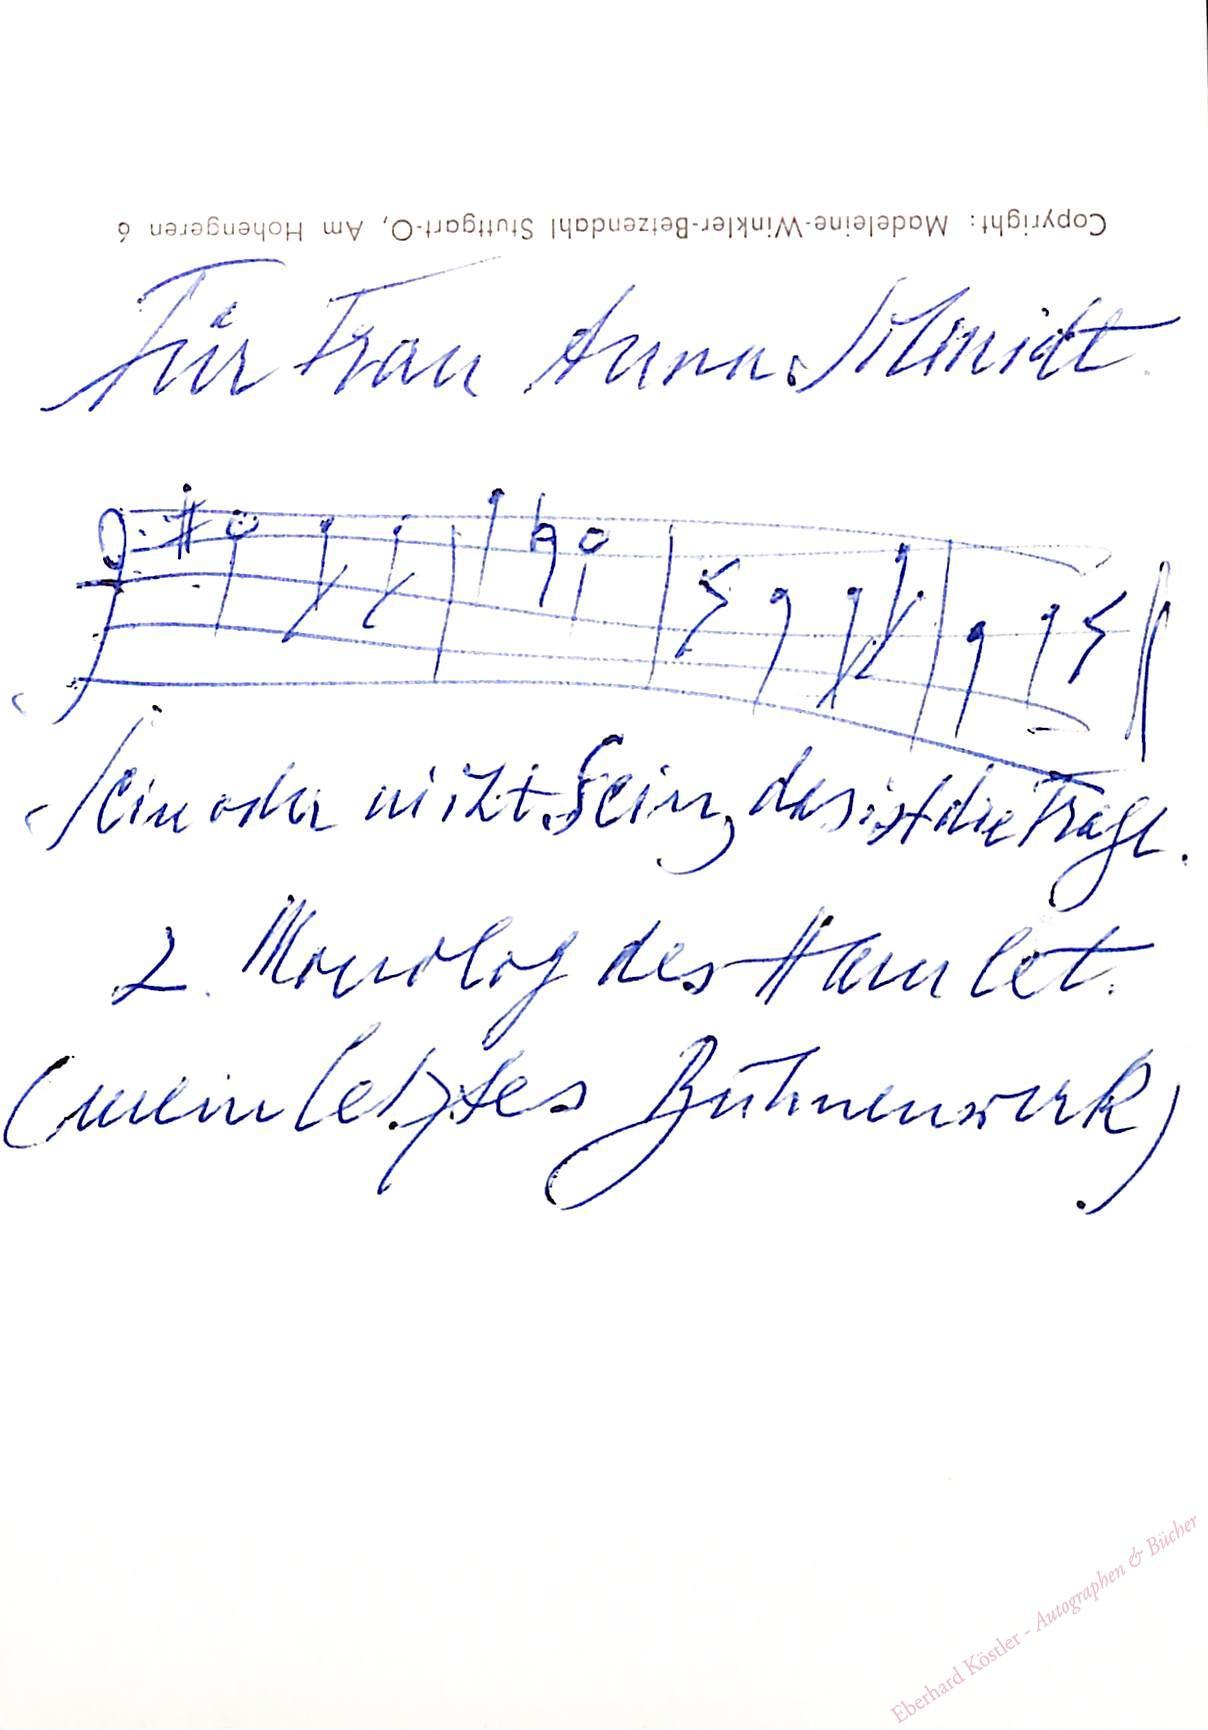 Copyright: Madeleine-Winkler-Betzendahl Stuttgart-O, Am Hohengeren 6
Für Frau Anna Schmidt.
Sein oder nicht Sein, das ist die Frage.
2. Monolog des Hamlet.
(mein letztes Bühnenwerk)
Eberhard Köstler - Autographen & Bücher